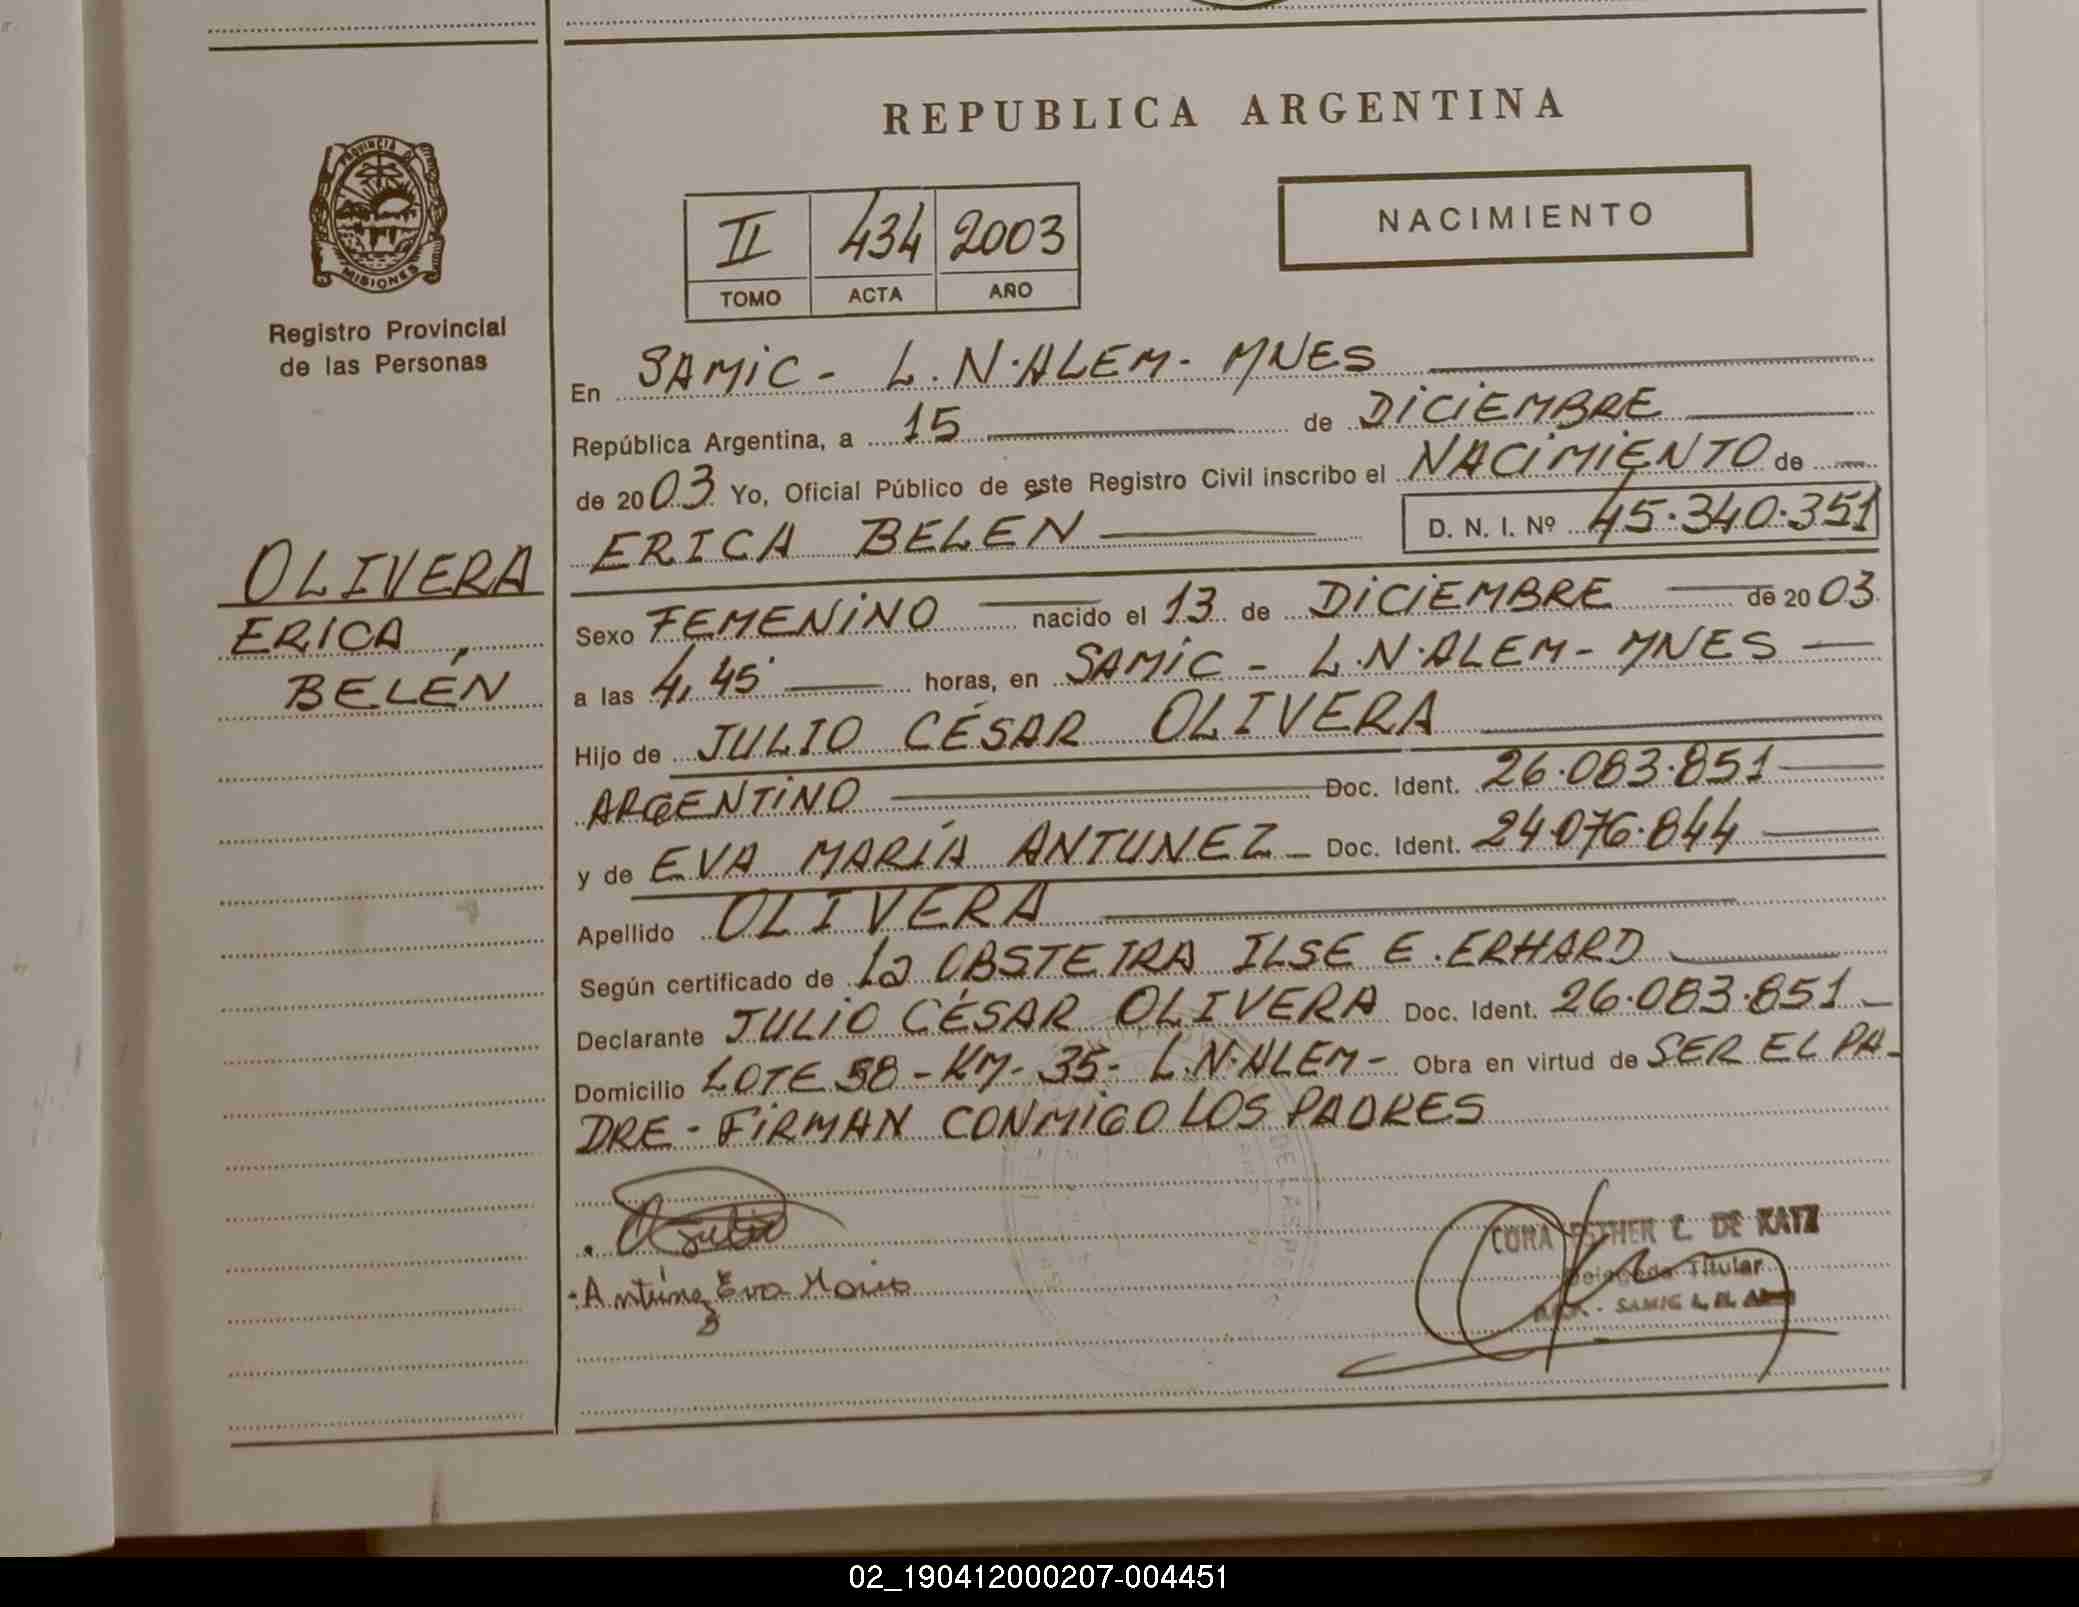 REPUBLICA ARGENTINA
PROVINCIA DE
MISIONES
Registro Provincial
de las Personas
II 434 2003
TOMO ACTA AÑO
NACIMIENTO
En SAMIC - L.N.ALEM - MNES
República Argentina, a 15 de DICIEMBRE
de 2003 Yo, Oficial Público de este Registro Civil inscribo el NACIMIENTO de
ERICA BELEN D. N. I. Nº 45.340.351
OLIVERA
ERICA
BELÉN
Sexo FEMENINO nacido el 13 de DICIEMBRE de 2003
a las 4,45 horas, en SAMIC - L.N.ALEM - MNES
Hijo de JULIO CÉSAR OLIVERA
ARGENTINO Doc. Ident. 26.083.851
y de EVA MARÍA ANTUNEZ Doc. Ident. 24.076.844
Apellido OLIVERA
Según certificado de la OBSTETRA ILSE E. ERHARD
Declarante JULIO CÉSAR OLIVERA Doc. Ident. 26.083.851
Domicilio LOTE 58 - KM - 35 - L.N.ALEM - Obra en virtud de SER EL PA-
DRE - FIRMAN CONMIGO LOS PADRES
CORA ESTHER C. DE KATZ
Delegada Titular
SAMIC L. N. ALEM
Antúnez Eva María
02_190412000207-004451